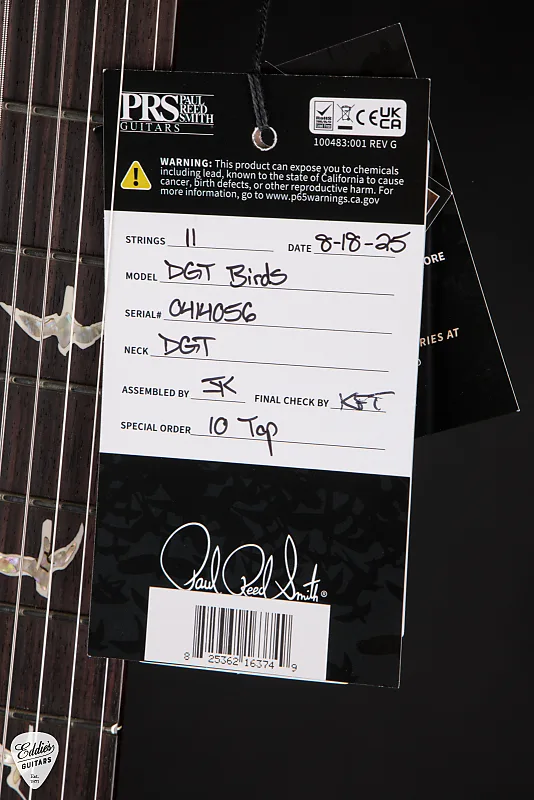 PRS PAUL REED SMITH
GUITARS
RoHS CE UK CA
100483:001 REV G
WARNING: This product can expose you to chemicals
including lead, known to the state of California to cause
cancer, birth defects, or other reproductive harm. For
more information, go to www.p65warnings.ca.gov
STRINGS 11 DATE 8-18-25
MODEL DGT Birds
SERIAL# 0414056
NECK DGT
ASSEMBLED BY JK FINAL CHECK BY KFT
SPECIAL ORDER 10 Top
ORE
RIES AT
Paul Reed Smith®
8 25362 16374 9
Eddie's
GUITARS
Est.